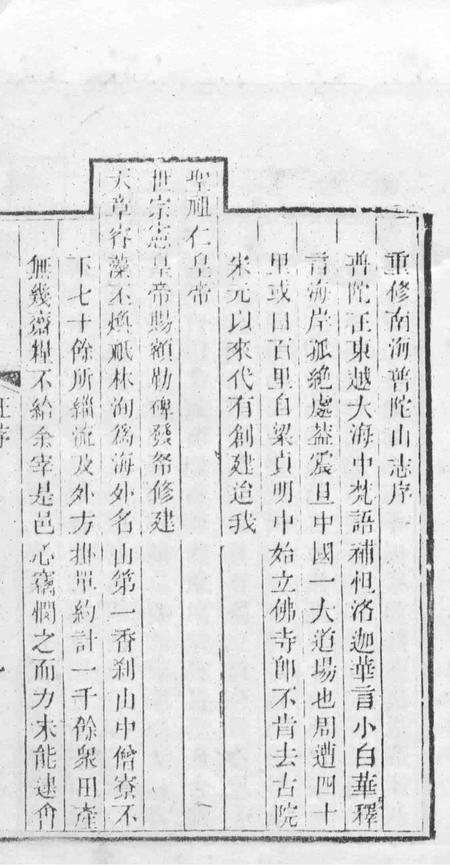 重修南海普陀山志序
普陀在東越大海中梵語補怛洛迦華言小白華釋
言海岸孤絶處葢震旦中國一大道場也周遭四十
里或曰百里自梁貞明中始立佛寺卽不肯去古院
宋元以來代有創建迨我
聖祖仁皇帝
世宗憲皇帝賜額勒碑發帑修建
天章睿藻丕煥祇林洵爲海外名山第一香刹山中僧寮不
下七十餘所緇流及外方掛單約計一千餘衆田產
無幾齋糧不給余宰是邑心竊憫之而力未能逮會
序